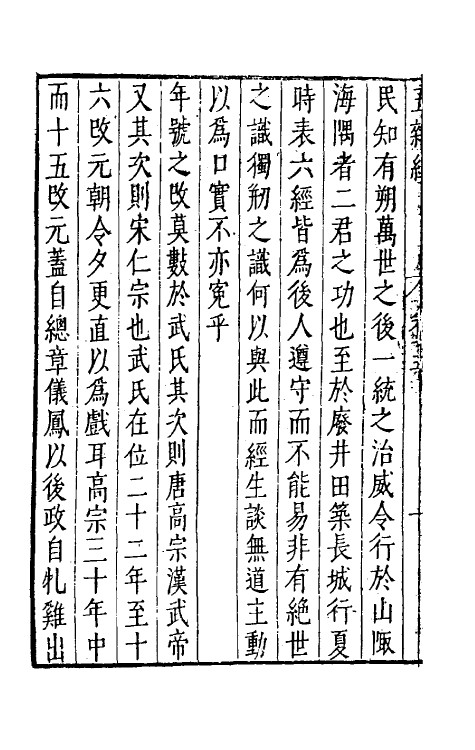 民知有朔萬世之後一統之治威令行於山陬
海隅者二君之功也至於廢井田築長城行夏
時表六經皆爲後人遵守而不能易非有絕世
之識獨剏之識何以與此而經生談無道主動
以爲口實不亦寃乎
年號之改莫數於武氏其次則唐高宗漢武帝
又其次則宋仁宗也武氏在位二十二年至十
六改元朝令夕更直以爲戲耳高宗三十年中
而十五改元蓋自總章儀鳳以後政自牝雞出